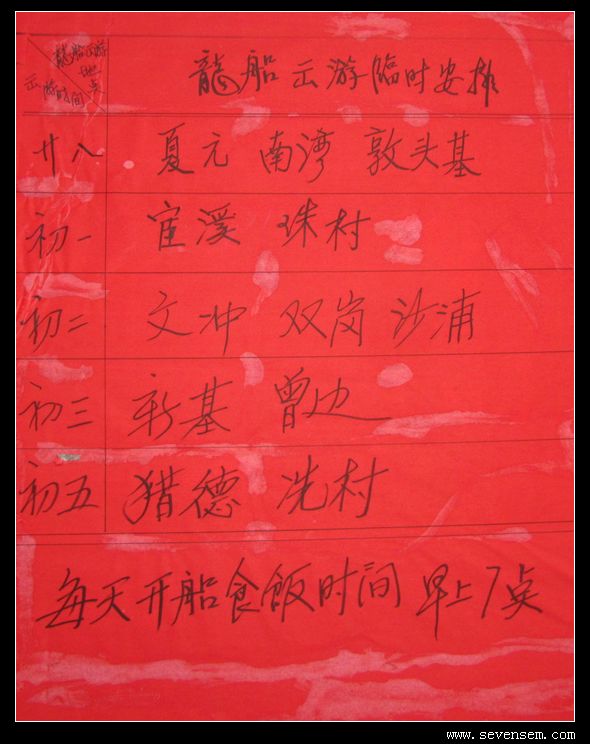 龍船出游地点
出游时间
龍船出游临时安排
廿八 夏元 南湾 敦头基
初一 宦溪 珠村
初二 文冲 双岗 沙浦
初三 新基 曾边
初五 猎德 冼村
每天开船食飯时间 早上7点
www.sevensem.com